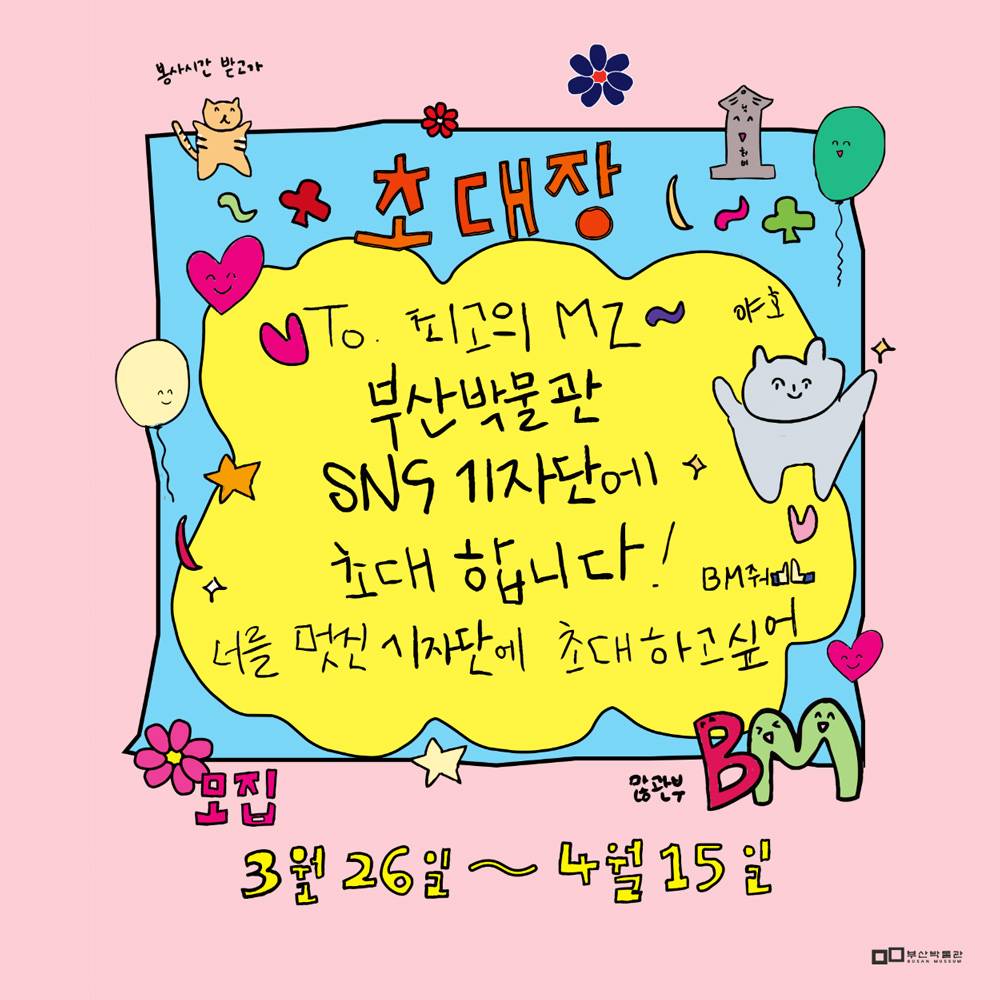 봉사시간 받고가
초대장
To. 최고의 MZ~
야호
부산박물관
SNS 기자단에
초대 합니다!
BM줘
너를 멋진 기자단에 초대하고싶어
BM
많관부
모집
3월 26일 ~ 4월 15일
부산박물관
BUSAN MUSEUM